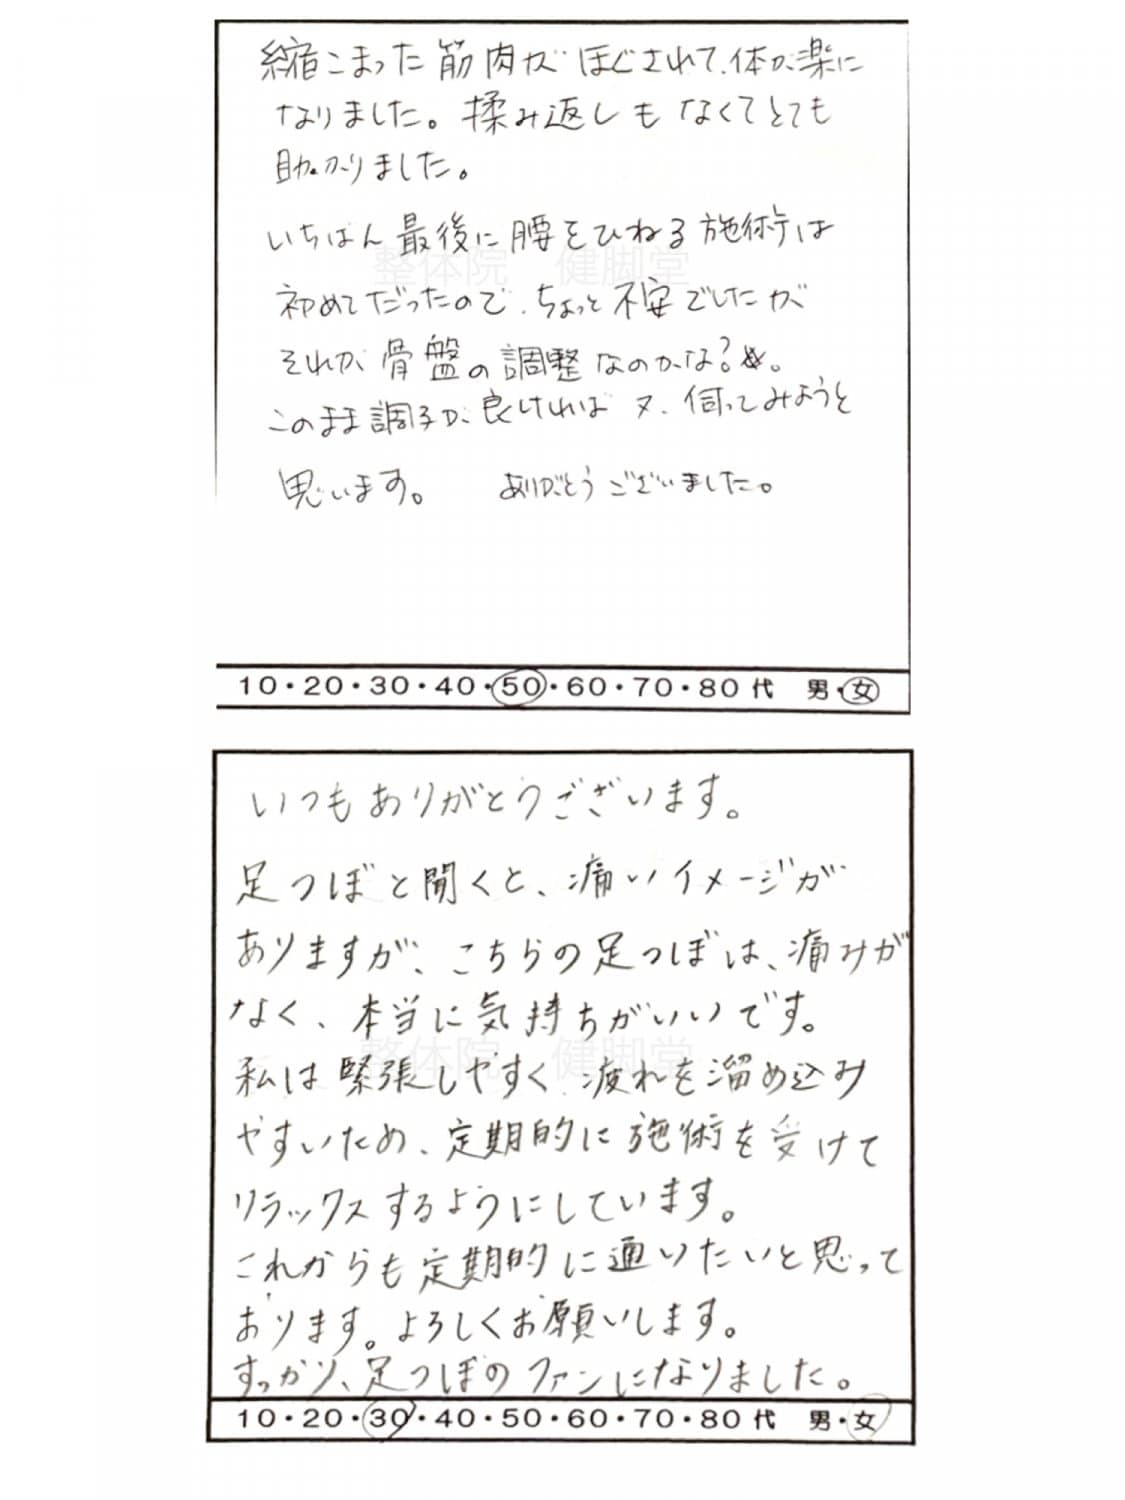 縮こまった筋肉がほぐされて、体が楽に
なりました。揉み返しもなくてとても
助かりました。
いちばん最後に腰をひねる施術は
整体院 健脚堂
初めてだったので、ちょっと不安でしたが
それが骨盤の調整なのかな?。
このまま調子が良ければ又、伺ってみようと
思います。 ありがとうございました。
10・20・30・40・50・60・70・80 代 男・女
いつもありがとうございます。
足つぼと聞くと、痛いイメージが
ありますが、こちらの足つぼは、痛みが
なく、本当に気持ちがいいです。
整体院 健脚堂
私は緊張しやすく、疲れを溜め込み
やすいため、定期的に施術を受けて
リラックスするようにしています。
これからも定期的に通いたいと思って
おります。よろしくお願いします。
すっかり、足つぼのファンになりました。
10・20・30・40・50・60・70・80 代 男・女